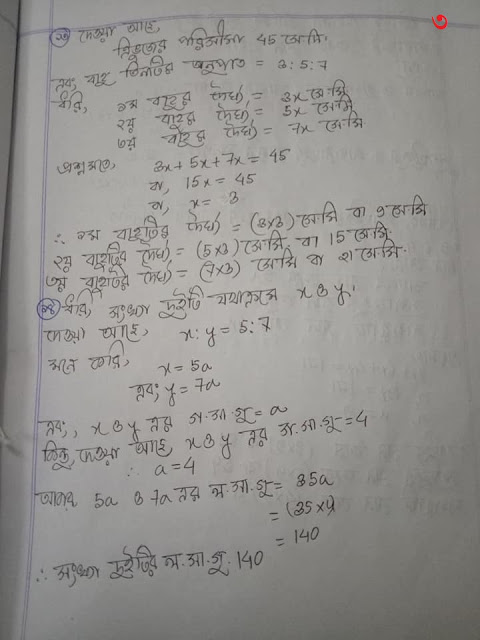 ৩
২৩ দেওয়া আছে,
ত্রিভুজের পরিসীমা 45 সে.মি.
এবং বাহু তিনটির অনুপাত = 3:5:7
ধরি, ১ম বাহুর দৈর্ঘ্য = 3x সে.মি
২য় বাহুর দৈর্ঘ্য = 5x সে.মি
৩য় বাহুর দৈর্ঘ্য = 7x সে.মি
প্রশ্নমতে, 3x + 5x + 7x = 45
বা, 15x = 45
বা, x = 3
∴ ১ম বাহুটির দৈর্ঘ্য = (3×3) সে.মি বা 9 সে.মি
২য় বাহুটির দৈর্ঘ্য = (5×3) সে.মি. বা 15 সে.মি.
৩য় বাহুটির দৈর্ঘ্য = (7×3) সে.মি বা 21 সে.মি.
২৪ ধরি, সংখ্যা দুইটি যথাক্রমে x ও y।
দেওয়া আছে, x:y = 5:7
মনে করি, x = 5a
এবং y = 7a
এবং, x ও y এর গ.সা.গু = a
কিন্তু দেওয়া আছে, x ও y এর গ.সা.গু = 4
∴ a = 4
আবার 5a ও 7a এর ল.সা.গু = 35a
= (35×4)
= 140
∴ সংখ্যা দুইটির ল.সা.গু. 140